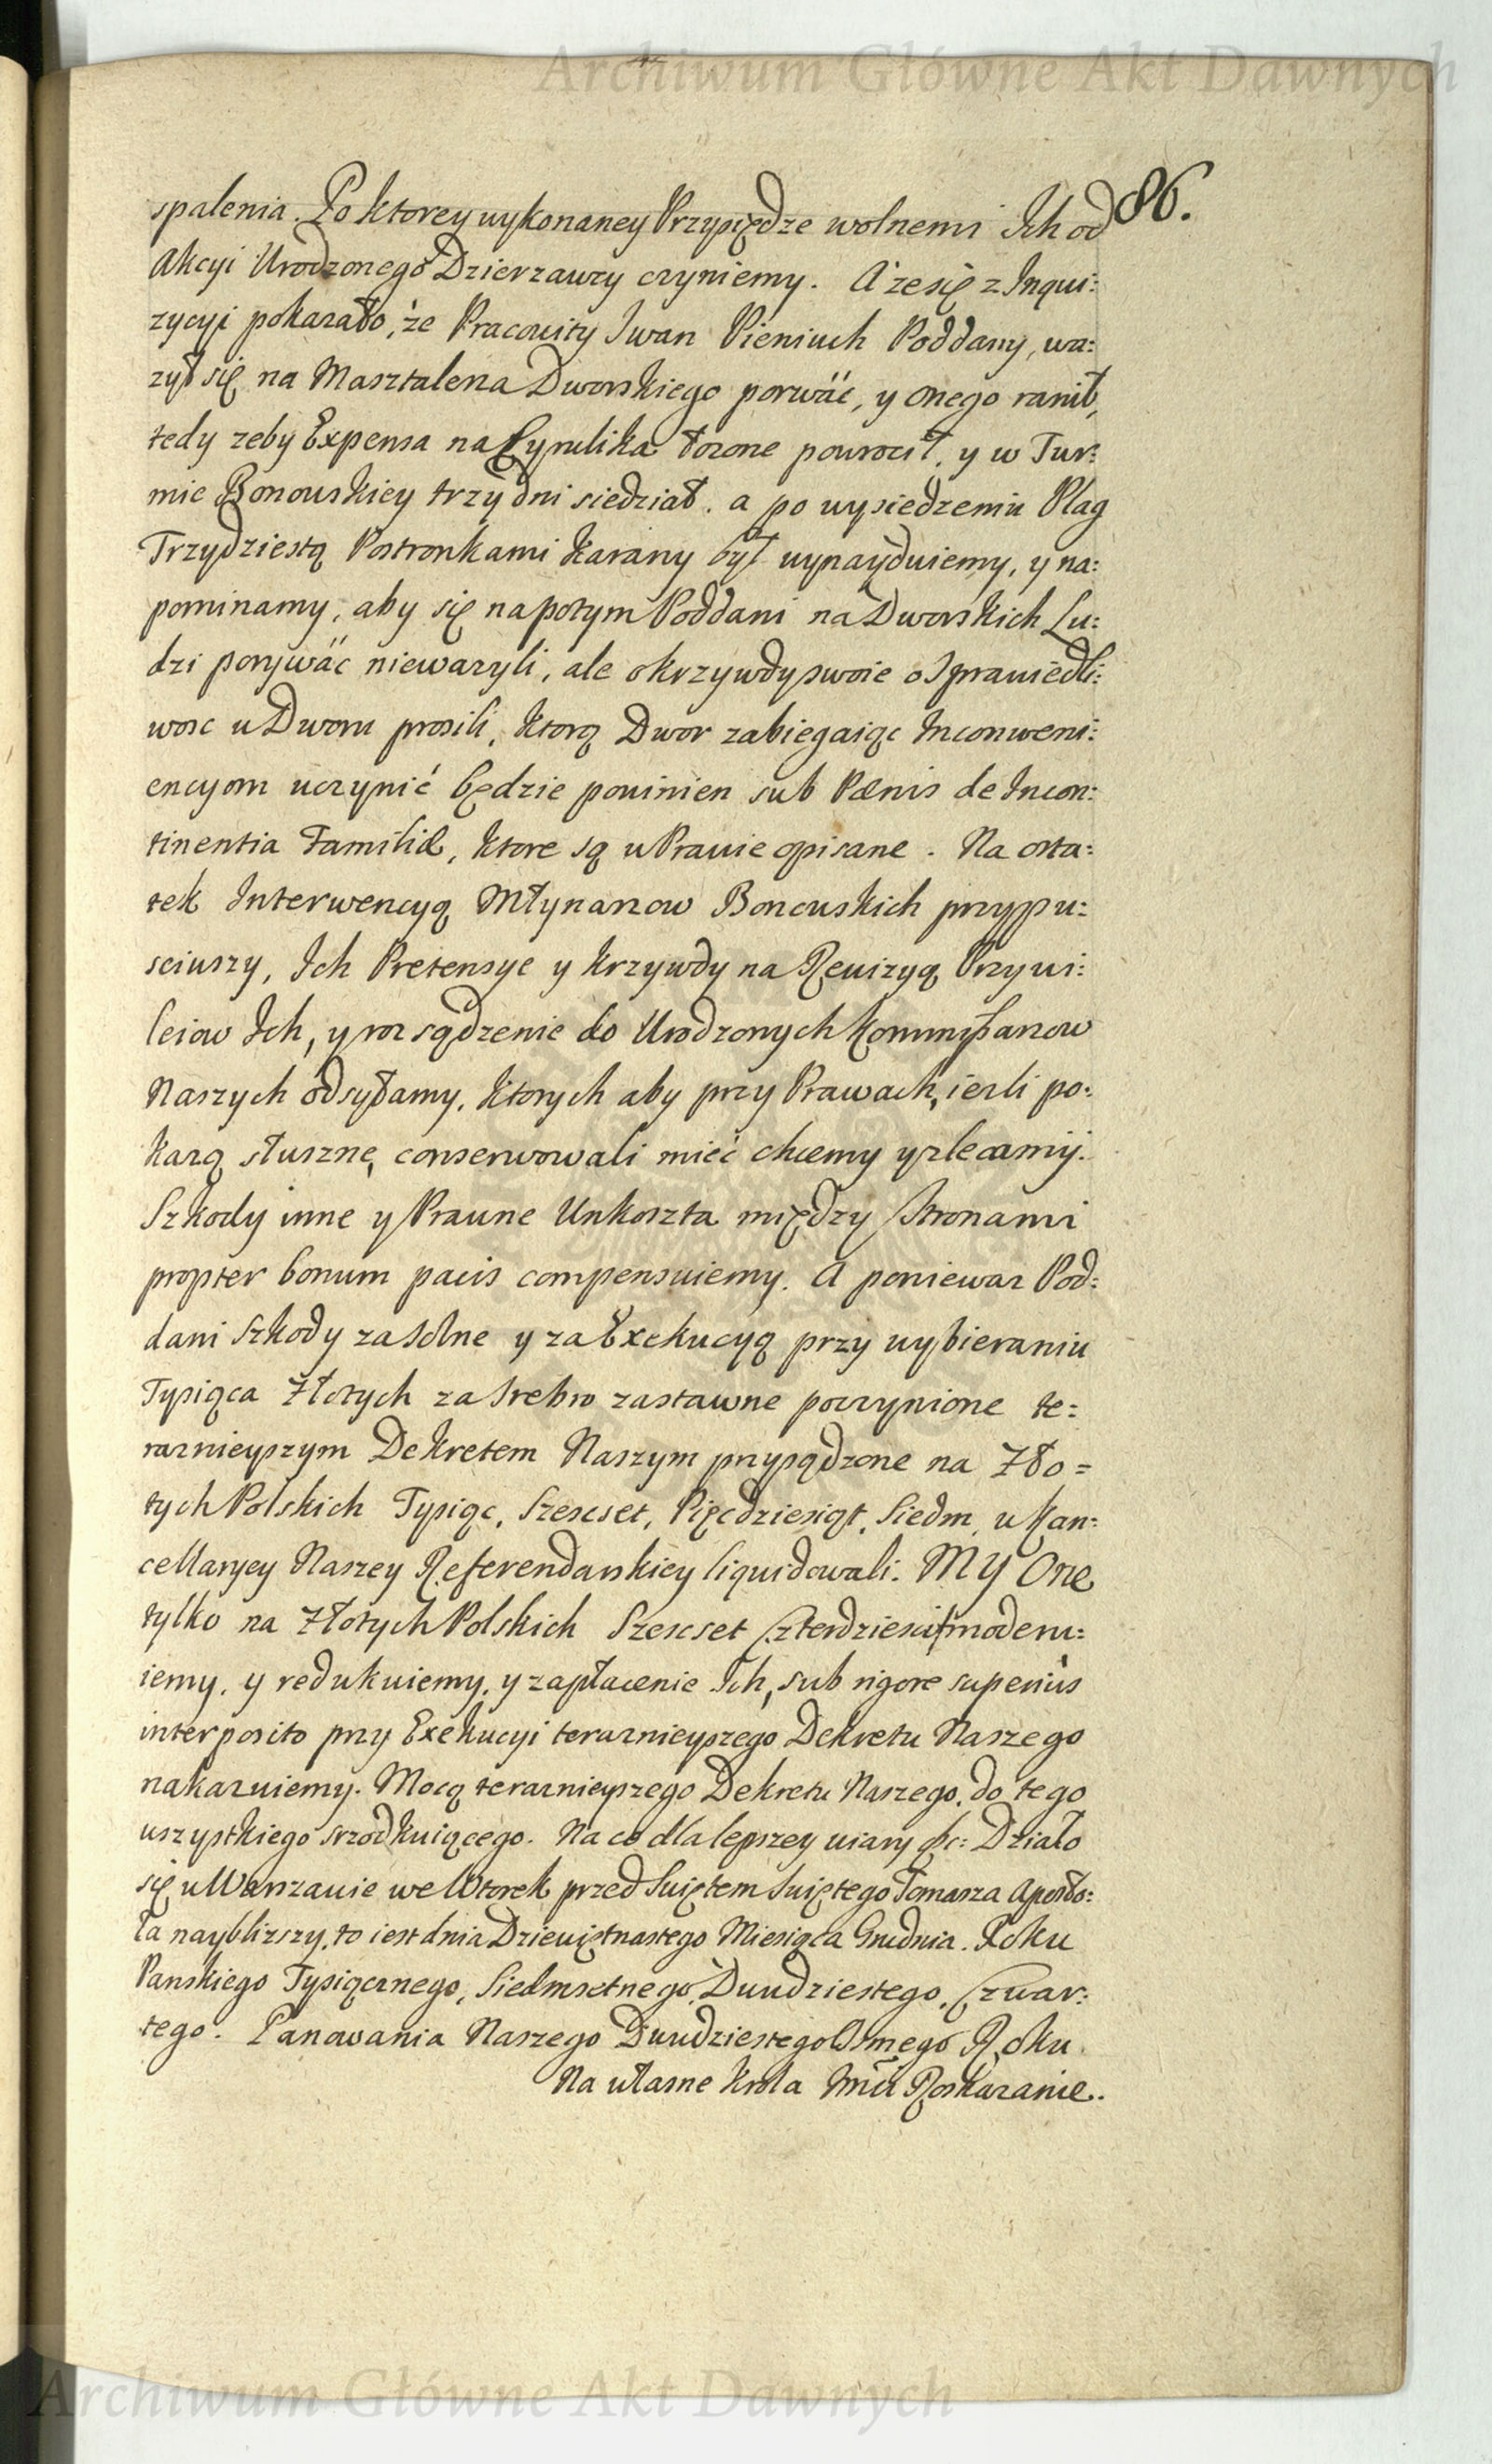 Archiwum Główne Akt Dawnych
86.
spalenia. Po ktorey wykonaney Przysiędze wolnemi Ich od
Akcyi Urodzonego Dzierzawcy czyniemy. A że się z Inqui:
zycyi pokazało, że Pracowity Iwan Pieniuch Poddany, wa:
zył się na Masztalerza Dworskiego porwać, y onego ranił,
tedy zeby Expensa na Cyrulika łozone powrocił, y w Tur:
mie Bonowskiey trzy dni siedział. a po wysiedzeniu Plag
Trzydziestą Postronkami karany był wynayduiemy, y na:
pominamy, aby się napotym Poddani na Dworskich Lu:
dzi porywać niewazyli, ale o krzywdy swoie o Sprawiedli:
wosc u Dworu prosili, ktorą Dwor zabiegaiąc Inconweni:
encyom uczynić będzie powinien sub Pænis de Incon:
tinentia Familiæ, ktore są w Prawie opisane. Na osta:
tek Interwencyą Młynarzow Bonowskich przypu:
sciwszy, Ich Pretensye y krzywdy na Rewizyą Przywi:
leiow Ich, y rozsądzenie do Urodzonych Kommissarzow
Naszych odsyłamy, ktorych aby przy Prawach, iezli po:
karzą słuszne, conserwowali mieć chcemy y zlecamy.
Szkody inne y Prawne Unkoszta między Stronami
propter bonum pacis compensuiemy. A poniewaz Pod:
dani Szkody za Solne y za Exekucyą przy wybieraniu
Tysiąca Złotych za Srebro zastawne poczynione te:
raznieyszym Dekretem Naszym przysądzone na Zło=
tych Polskich Tysiąc, Szescset, Pięcdziesiąt, Siedm, w Kan:
cellaryey Naszey Referendarskiey liquidowali. MY One
tylko na Złotych Polskich Szescset Czterdziesci moderu:
iemy, y redukuiemy, y zapłacenie Ich, sub rigore superius
interposito przy Exekucyi teraznieyszego Dekretu Naszego
nakazuiemy. Mocą teraznieyszego Dekretu Naszego, do tego
wszystkiego srzodkuiącego. Na co dla lepszey wiary &c: Działo
się w Warszawie we Wtorek przed Swiętem Swiętego Tomasza Aposto:
ła nayblizszy, to iest dnia Dziewiętnastego Miesiąca Grudnia. Roku
Panskiego Tysiącznego, Siedmsetnego, Dwudziestego, Czwar:
tego. Panowania Naszego Dwudziestego Osmego Roku
Na własne Krola Jmći Roskazanie.
Archiwum Główne Akt Dawnych